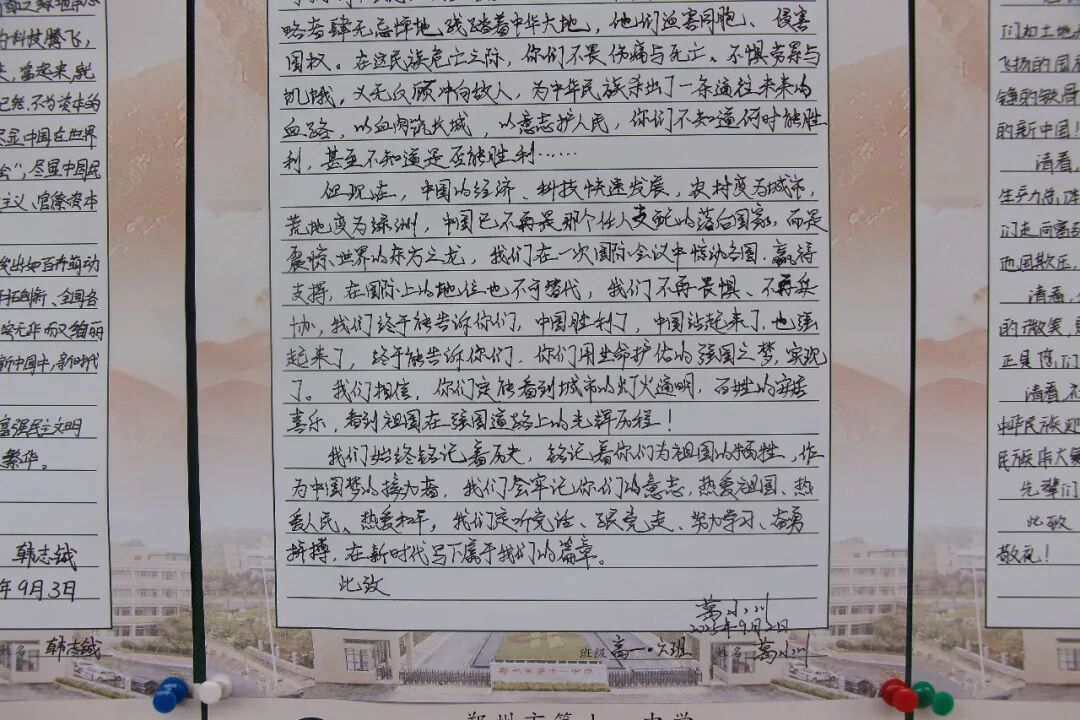 的科技腾飞，
来，富起来，就
尽显中国在世界
会”，尽显中国民
主义、官僚资本
拓创新、全国各
新中国中，新时代
富强民主文明
繁华。
韩志钺
年9月3日
姓名 韩志钺
略者肆无忌惮地践踏着中华大地，他们迫害同胞、侵害
国权。在这民族危亡之际，你们不畏伤痛与死亡、不惧劳累与
饥饿，义无反顾冲向敌人，为中华民族杀出了一条通往未来的
血路，以血肉筑长城，以意志护人民，你们不知道何时能胜
利，甚至不知道是否能胜利……
但现在，中国的经济、科技快速发展，农村变为城市，
荒地变为绿洲，中国已不再是那个任人支配的落后国家，而是
震惊世界的东方之龙，我们在一次国际会议中惊动各国，赢得
支持，在国际上的地位也不可替代，我们不再畏惧、不再妥
协，我们终于能告诉你们，中国胜利了，中国站起来了，也强
起来了，终于能告诉你们，你们用生命护佑的强国之梦，实现
了。我们相信，你们定能看到城市的灯火通明，百姓的安居
喜乐，看到祖国在强国道路上的光辉历程！
我们始终铭记着历史，铭记着你们为祖国的牺牲，作
为中国梦的接力者，我们会牢记你们的意志，热爱祖国、热
爱人民、热爱和平，我们定听党话、跟党走、努力学习、奋勇
拼搏，在新时代写下属于我们的篇章。
此致
2025年9月2日
班级 高一·六班 姓名
郑州市第十一中学
们和土地
飞扬的国
的新中国！
清看，
们走向富
他国欺压，
清看，
的微笑，
正是你们
清看，在
中华民族
先辈们
此致
敬礼！